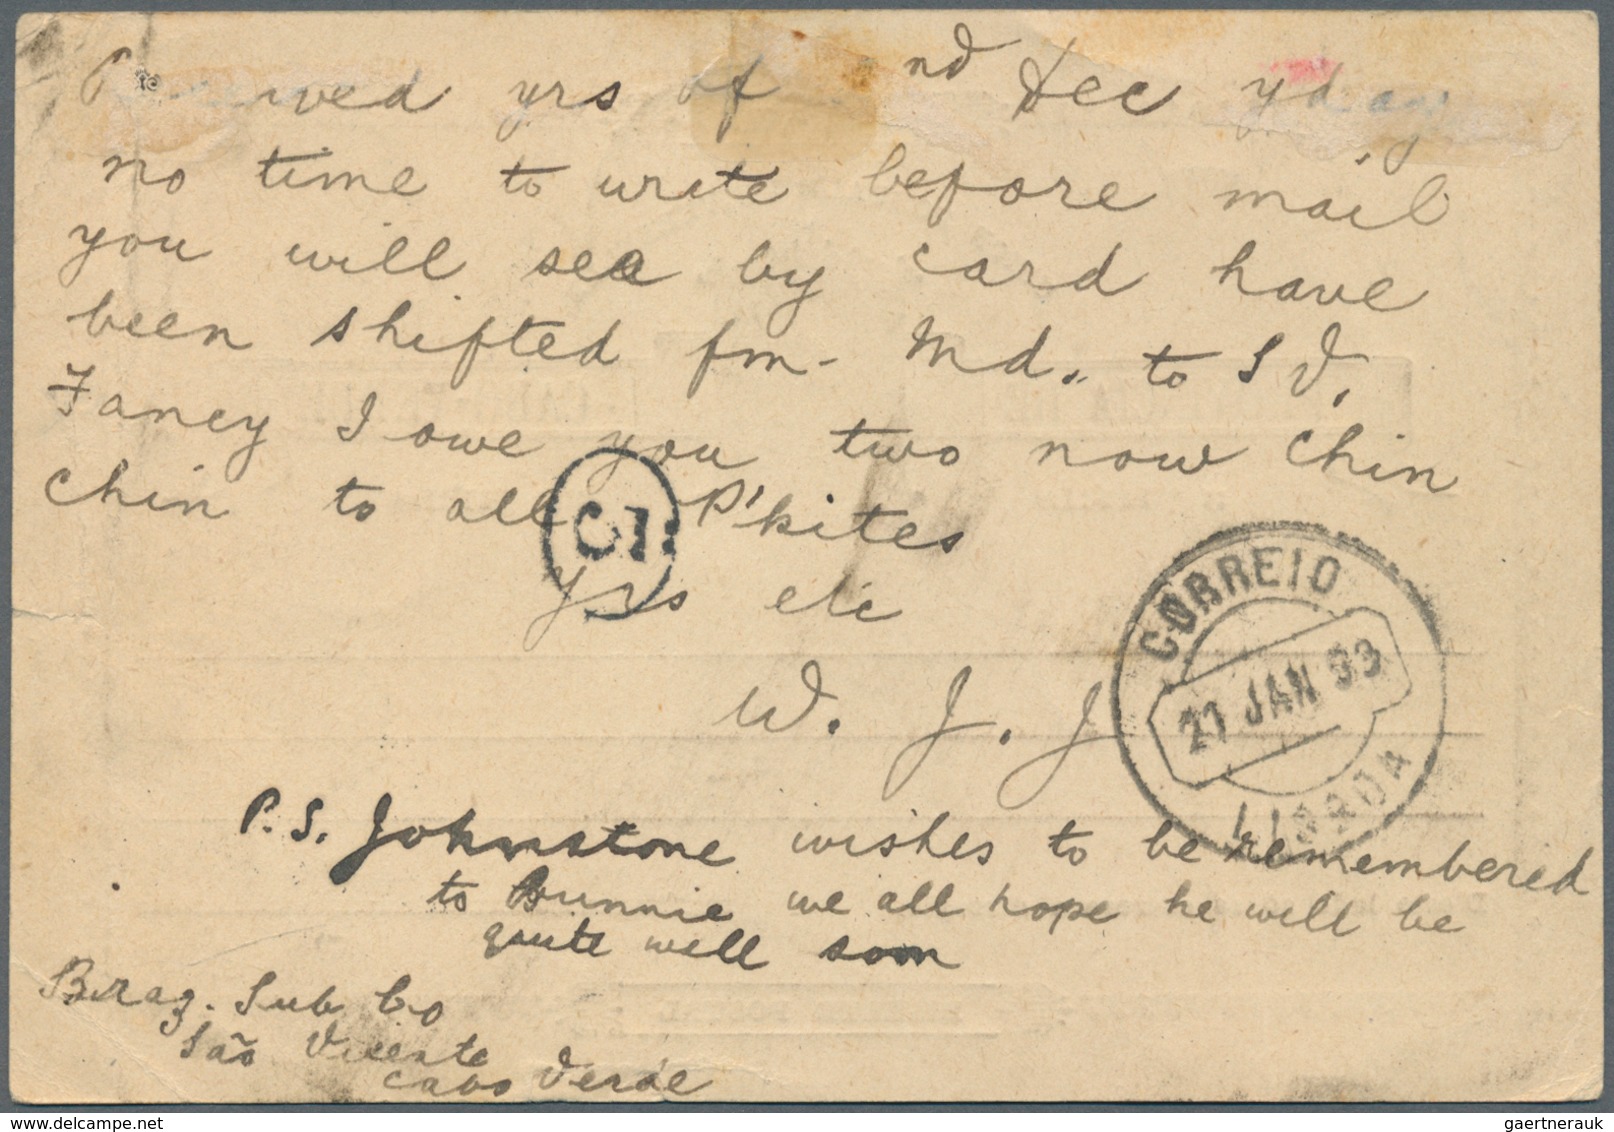 yrs of nd Dec
no time to write before mail
you will see by card have
been shifted fm- Md. to S V.
Fancy I owe you two now Chin
Chin to all P'kites
C.1.
Yrs etc
W. J. J
CORREIO
27 JAN 93
LISBOA
P.S. Johnstone wishes to be remembered
to Bunnie we all hope he will be
quite well soon
Braz. Sub Co
São Vicente
Cabo Verde
gaertnerauk @